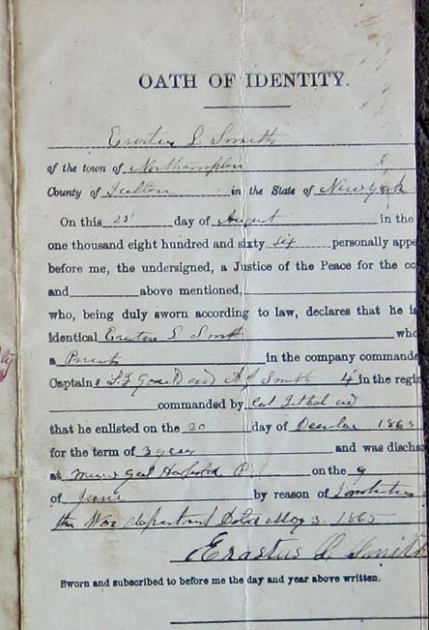 OATH OF IDENTITY.
Erastus L Smith
of the town of Northampton
County of Fulton in the State of New York
On this 25 day of August in the
one thousand eight hundred and sixty six personally appe
before me, the undersigned, a Justice of the Peace for the co
and above mentioned,
who, being duly sworn according to law, declares that he is
identical Erastus L Smith who
a Private in the company commande
Captains and A Smith 4 in the regi
commanded by Col
that he enlisted on the 20 day of 1863
for the term of 3 years and was discha
at Hospital on the 9
of June by reason of
the War department Dated May 3. 1865
Erastus L Smith
Sworn and subscribed to before me the day and year above written.